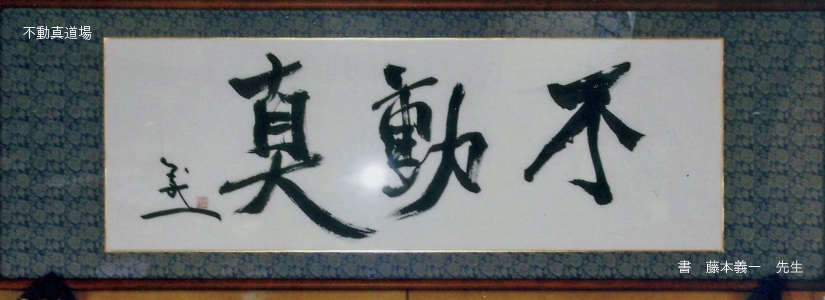 不動真道場
不動真
義一
書　藤本義一　先生